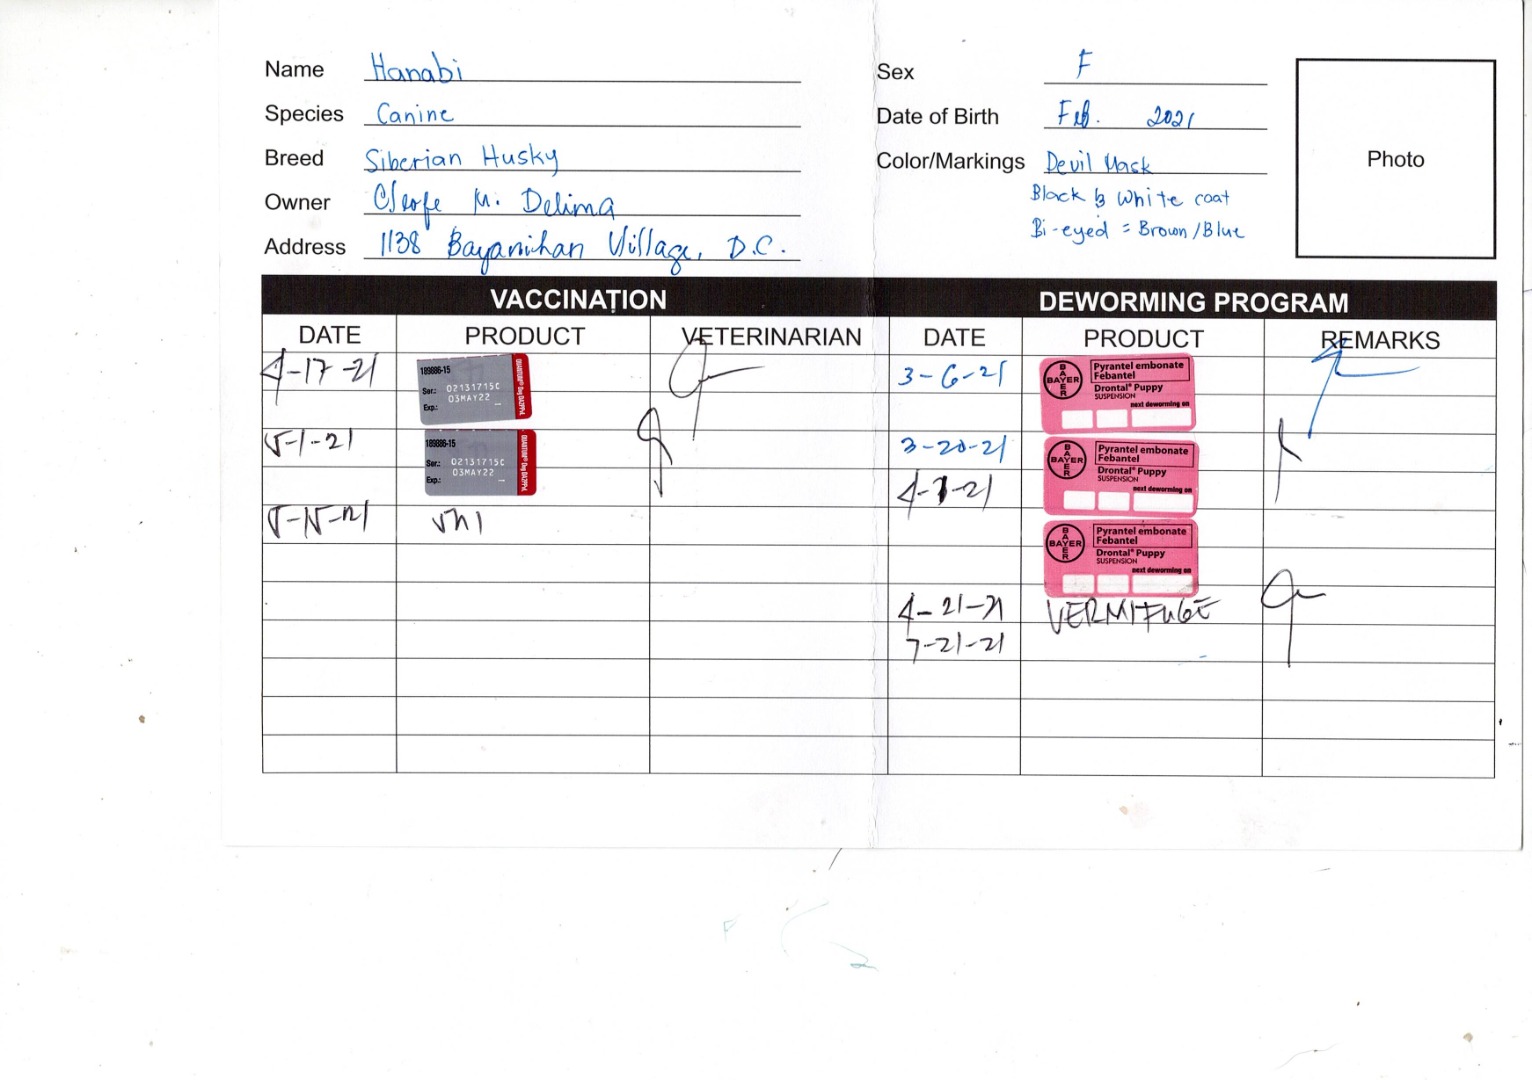 Name Hanabi
Species Canine
Breed Siberian Husky
Owner M. Delima
Address 1138 Bayanihan Village, D.C.
Sex F
Date of Birth Feb. 2021
Color/Markings Devil Mask
Black & White coat
Bi-eyed = Brown/Blue
Photo
VACCINATION DEWORMING PROGRAM
DATE PRODUCT VETERINARIAN DATE PRODUCT REMARKS
4-17-21
189886-15
Ser.: 02131715C
03MAY22
Exp.:
3-6-21
BAYER
BAYER
Pyrantel embonate
Febantel
Drontal® Puppy
SUSPENSION
next deworming on
5-1-21
189886-15
Ser.: 02131715C
03MAY22
Exp.:
3-20-21
BAYER
BAYER
Pyrantel embonate
Febantel
Drontal® Puppy
SUSPENSION
next deworming on
5-15-21
BAYER
BAYER
Pyrantel embonate
Febantel
Drontal® Puppy
SUSPENSION
next deworming on
4-21-21 VERMIFUGE
7-21-21